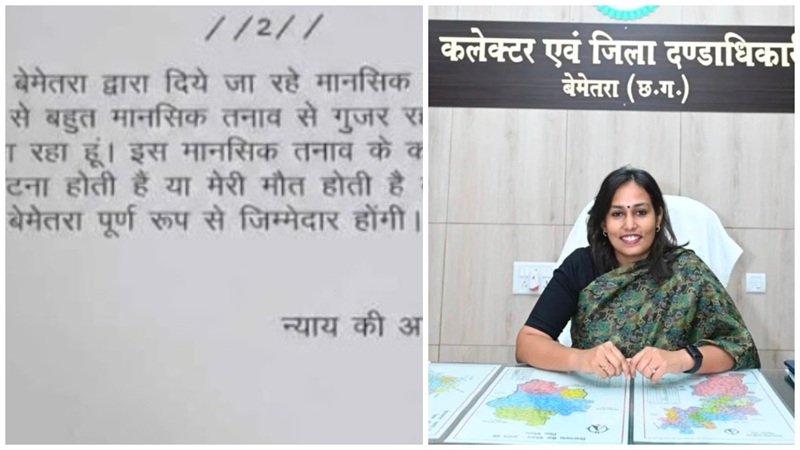 //2//
बेमेतरा द्वारा दिये जा रहे मानसिक
से बहुत मानसिक तनाव से गुजर रह
ा रहा हूं। इस मानसिक तनाव के क
टना होती है या मेरी मौत होती है
बेमेतरा पूर्ण रूप से जिम्मेदार होंगी।
न्याय की अ
कलेक्टर एवं जिला दण्डाधिकारी
बेमेतरा (छ.ग.)